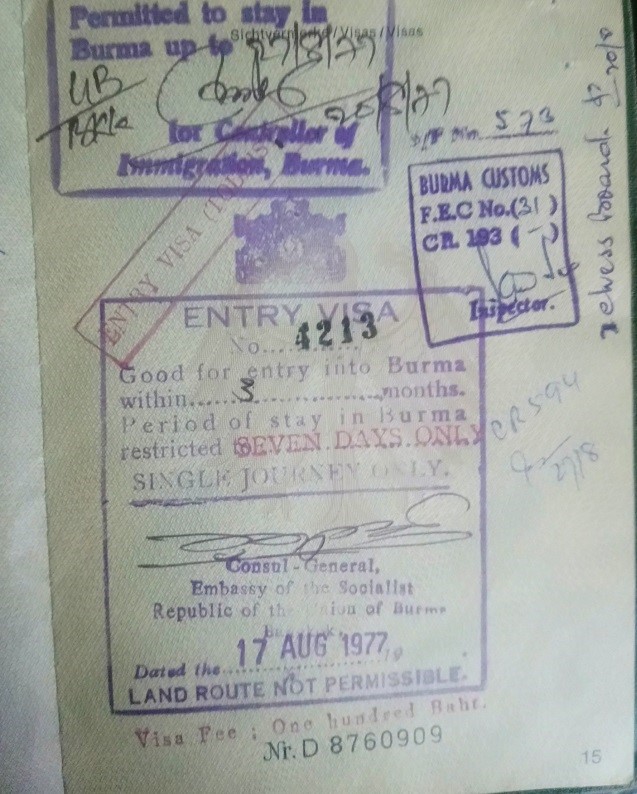 Permitted to stay in
Sichtvermerke / Visas / Visas
Burma up to 27/8/77
20/8/77
for Controller of
Immigration, Burma.
ENTRY VISA
573
BURMA CUSTOMS
F.E.C No.(31)
CR. 193 (-)
Inspector.
ENTRY VISA
No....4213....
Good for entry into Burma
within......3..................months.
Period of stay in Burma
restricted SEVEN DAYS ONLY
SINGLE JOURNEY ONLY.
CR 594
27/8
Consul-General,
Embassy of the Socialist
Republic of the Union of Burma
17 AUG 1977
Dated the..................19
LAND ROUTE NOT PERMISSIBLE.
Visa Fee : One hundred Baht.
Nr. D 8760909
15